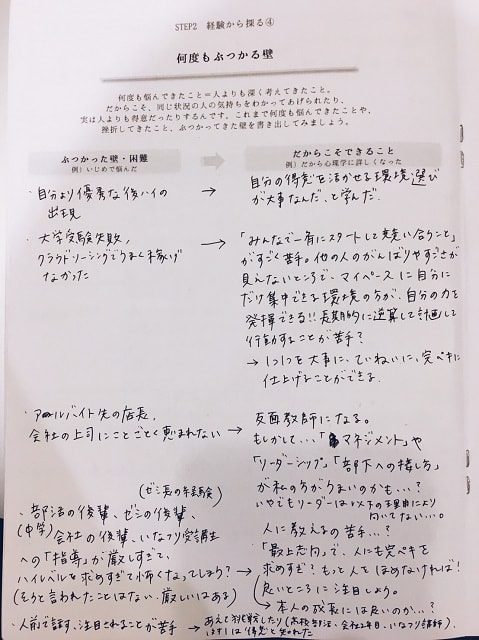 STEP2 経験から探る④
何度もぶつかる壁
何度も悩んできたこと=人よりも深く考えてきたこと。
だからこそ、同じ状況の人の気持ちをわかってあげられたり、
実は人よりも得意だったりするんです。これまで何度も悩んできたことや、
挫折してきたこと、ぶつかってきた壁を書き出してみましょう。
ぶつかった壁・困難
例)いじめで悩んだ
だからこそできること
例)だから心理学に詳しくなった
・自分より優秀な後ハイの
出現
→ 自分の得意を活かせる環境選び
が大事なんだ、と学んだ。
・大学受験失敗、
クラウドソーシングでうまく稼げ
なかった
→ 「みんなで一斉にスタートして競い合うこと」
がすごく苦手。他の人のがんばりやすごさが
見えないところで、マイペースに自分に
だけ集中できる環境の方が、自分の力を
発揮できる!!長期的に逆算して計画して
行動することが苦手?
→1つ1つを大事に、ていねいに、完ペキに
仕上げることができる。
・アルバイト先の店長、
会社の上司にことごとく恵まれない
→ 反面教師になる。
もしかして…「マネジメント」や
「リーダーシップ」「部下への接し方」
が私の方がうまいのかも…?
いやでもリーダーは以下の理由により
向いてない…。
(ゼミ長の経験)
・部活の後輩、ゼミの後輩、
(中学)
会社の後輩、いなフリ受講生
への「指導」が厳しすぎて、
ハイレベルを求めすぎて怖くなってしまう?
(そうと言われたことはない、厳しいはある)
→ 人に教えるの苦手…?
「最上志向」で、人にも完ペキを
求めすぎ?もっと人をほめなければ!
良いところに注目しよう。
→本人の成長には良いのか…?
・人前で話す、注目されることが苦手
→ あえて挑戦したり(高校部活、会社2年目、いなフリ講師)、